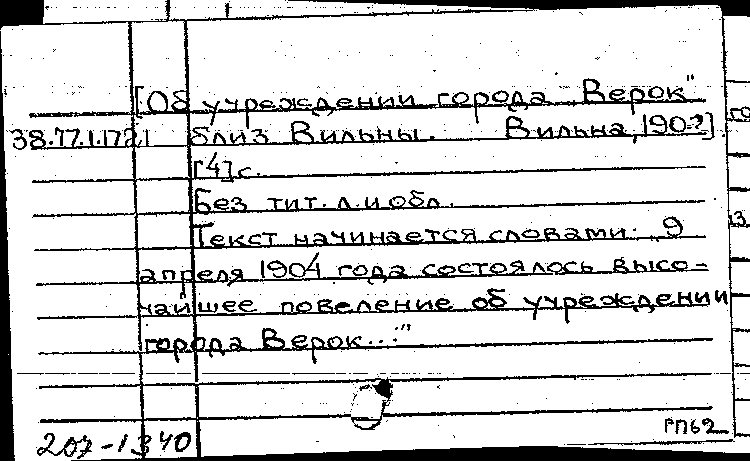 [Об учреждении города „Верок"
38.77.1.1721 близ Вильны. Вильна, 190-?]
[4] с.
Без тит. л. и обл.
Текст начинается словами: „9
апреля 1904 года состоялось высо-
чайшее повеление об учреждении
города Верок..."
207-1340
РП62